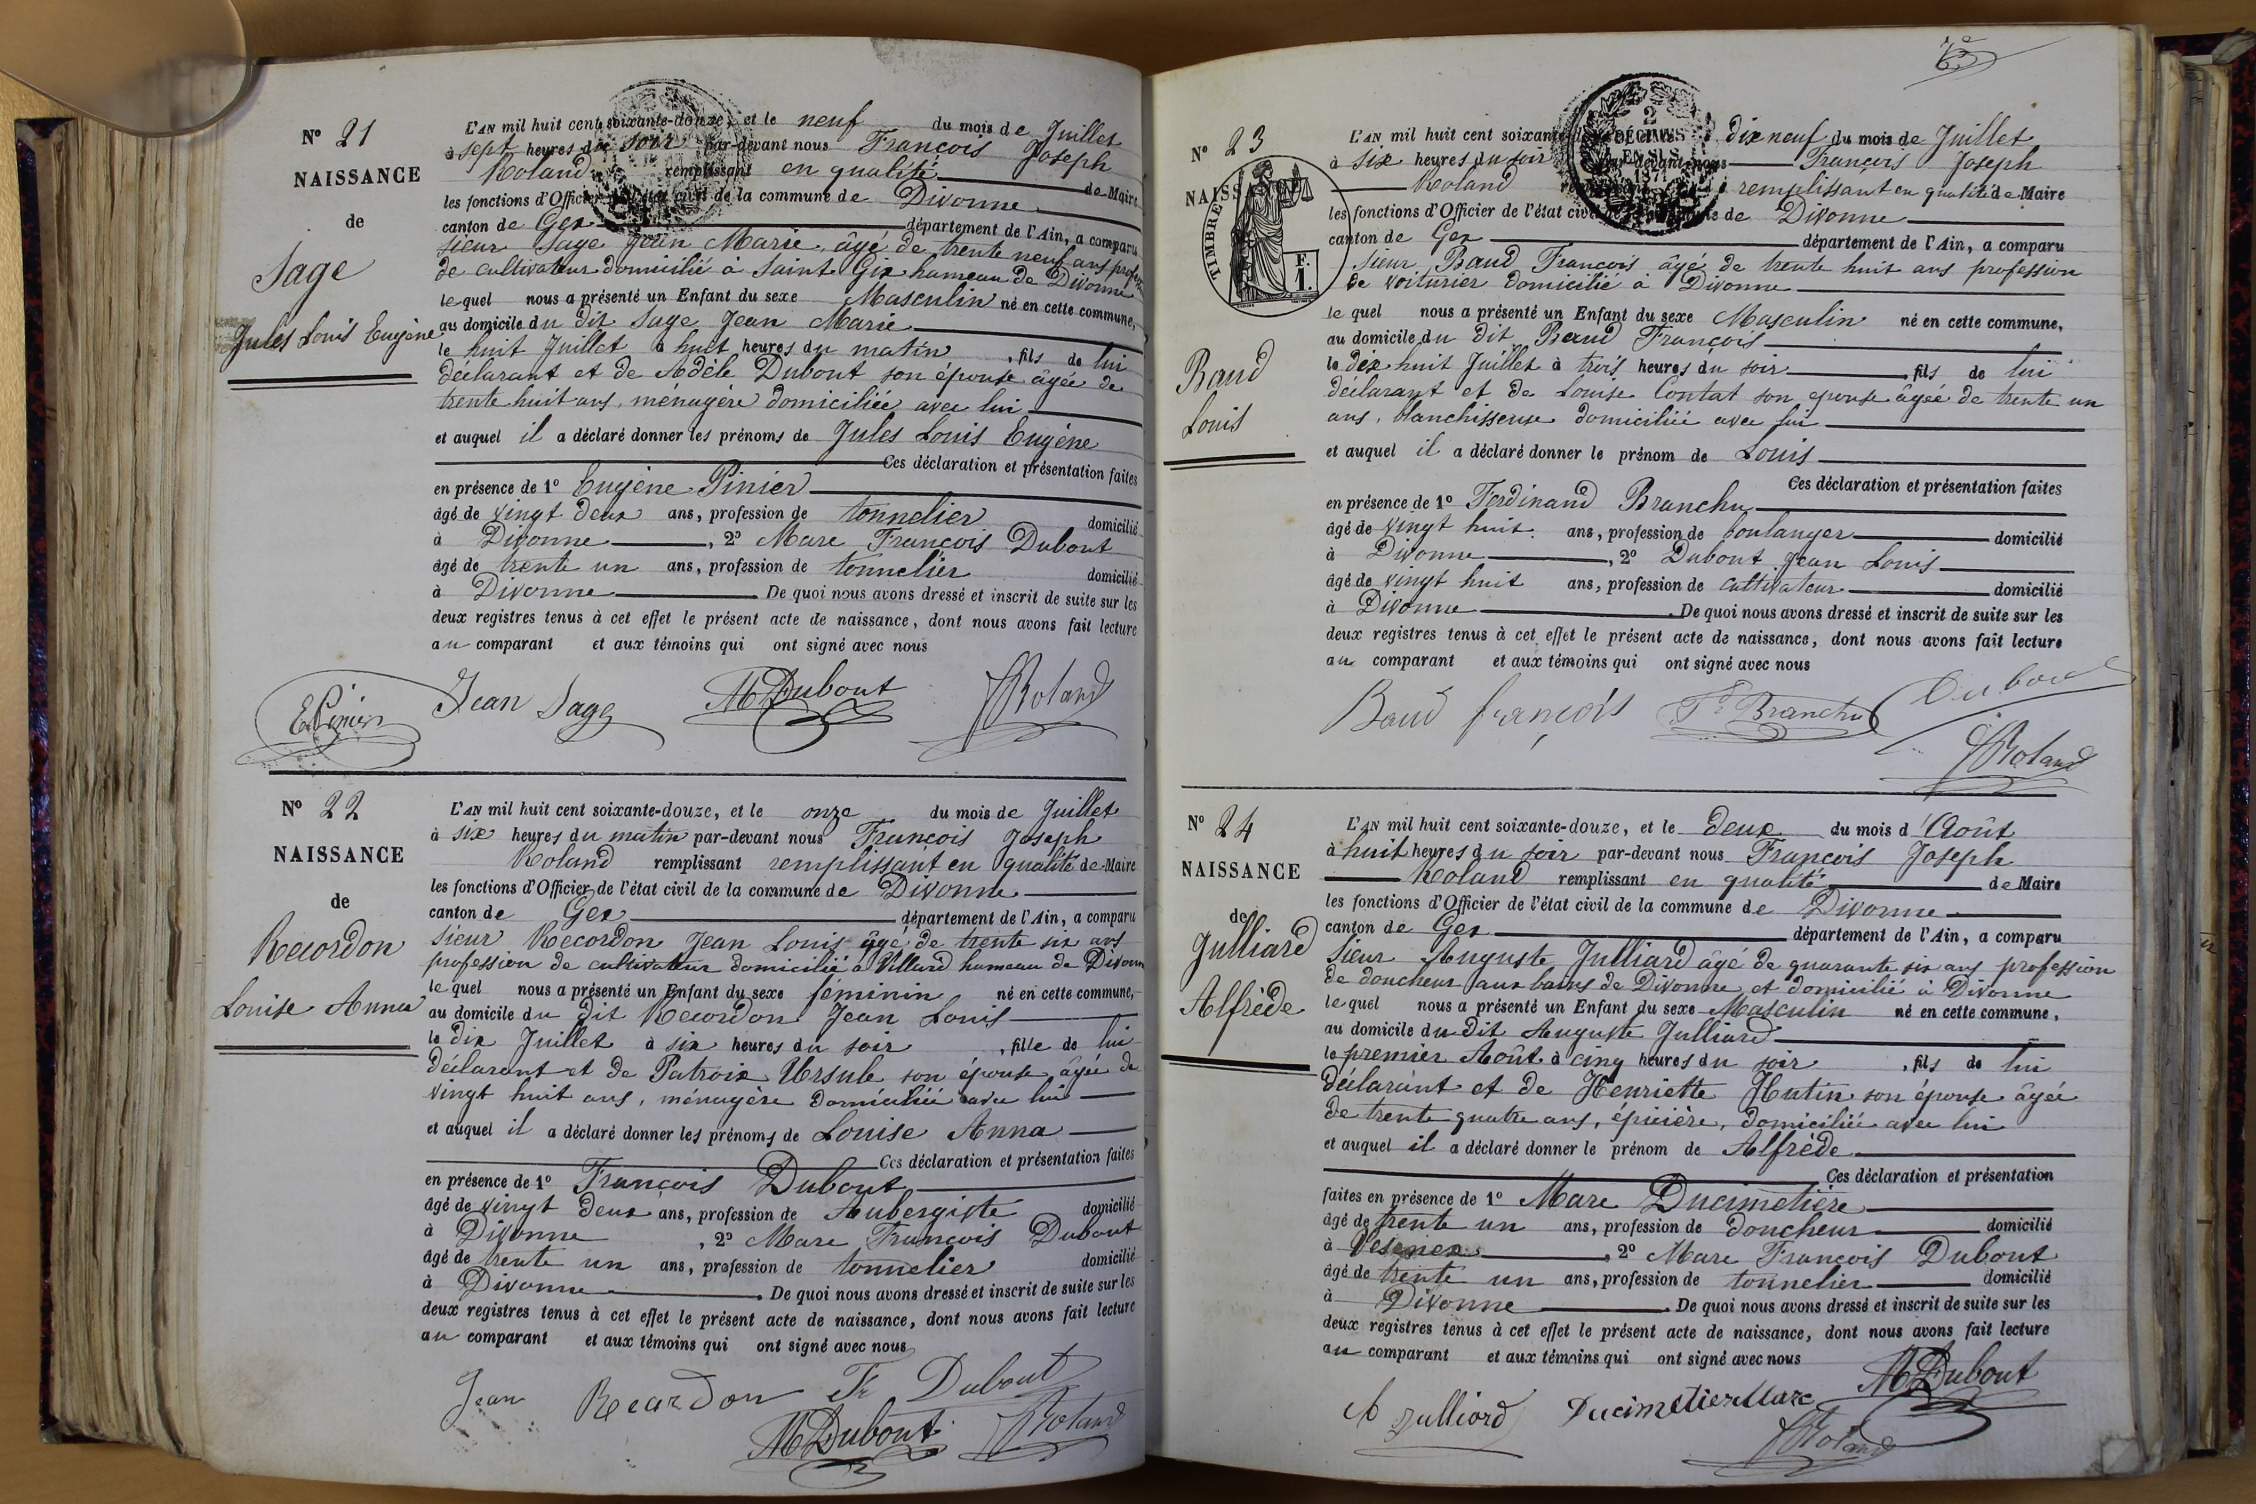 N° 21
NAISSANCE
de
Sage
Jules Louis Eugène
L'AN mil huit cent soixante-douze, et le neuf du mois de Juillet
à sept heures du soir par-devant nous François Joseph
Roland remplissant en qualité de Maire
les fonctions d'Officier de l'état civil de la commune de Divonne
canton de Gex département de l'Ain, a comparu
sieur Sage Jean Marie, âgé de trente neuf ans profession
de cultivateur domicilié à Saint Gix hameau de Divonne
lequel nous a présenté un Enfant du sexe Masculin né en cette commune,
au domicile du dit Sage Jean Marie
le huit Juillet à huit heures du matin, fils de lui
déclarant et de Adèle Dubout son épouse âgée de
trente huit ans, ménagère domiciliée avec lui
et auquel il a déclaré donner les prénoms de Jules Louis Eugène
Ces déclaration et présentation faites
en présence de 1° Eugène Pinier
âgé de vingt deux ans, profession de tonnelier domicilié
à Divonne, 2° Marc François Dubout
âgé de trente un ans, profession de tonnelier domicilié
à Divonne. De quoi nous avons dressé et inscrit de suite sur les
deux registres tenus à cet effet le présent acte de naissance, dont nous avons fait lecture
au comparant et aux témoins qui ont signé avec nous
E Pinier Jean Sage M Dubout J Roland
N° 22
NAISSANCE
de
Recordon
Louise Anna
L'AN mil huit cent soixante-douze, et le onze du mois de Juillet
à six heures du matin par-devant nous François Joseph
Roland remplissant remplissant en qualité de Maire
les fonctions d'Officier de l'état civil de la commune de Divonne
canton de Gex département de l'Ain, a comparu
sieur Recordon Jean Louis âgé de trente six ans
profession de cultivateur domicilié à Villard hameau de Divonne
lequel nous a présenté un Enfant du sexe féminin né en cette commune,
au domicile du dit Recordon Jean Louis
le dix Juillet à six heures du soir, fille de lui
déclarant et de Patroix Ursule son épouse âgée de
vingt huit ans, ménagère domiciliée avec lui
et auquel il a déclaré donner les prénoms de Louise Anna
Ces déclaration et présentation faites
en présence de 1° François Dubout
âgé de vingt deux ans, profession de Aubergiste domicilié
à Divonne, 2° Marc François Dubout
âgé de trente un ans, profession de tonnelier domicilié
à Divonne. De quoi nous avons dressé et inscrit de suite sur les
deux registres tenus à cet effet le présent acte de naissance, dont nous avons fait lecture
au comparant et aux témoins qui ont signé avec nous
Jean Recardon Fr Dubout
M Dubout J Roland
N° 23
NAISS
TIMBRE
F.
1.
Baud
Louis
2
DÉCIMES
EN SUS
1871
L'AN mil huit cent soixante dix neuf du mois de Juillet
à six heures du soir par-devant nous François Joseph
Roland remplissant en qualité de Maire
les fonctions d'Officier de l'état civil de Divonne
canton de Gex département de l'Ain, a comparu
sieur Baud François âgé de trente huit ans profession
de voiturier domicilié à Divonne
lequel nous a présenté un Enfant du sexe Masculin né en cette commune,
au domicile du dit Baud François
le dix huit Juillet à trois heures du soir, fils de lui
déclarant et de Louise Contat son épouse âgée de trente un
ans, blanchisseuse domiciliée avec lui
et auquel il a déclaré donner le prénom de Louis
Ces déclaration et présentation faites
en présence de 1° Ferdinand Branchu
âgé de vingt huit ans, profession de boulanger domicilié
à Divonne, 2° Dubout Jean Louis
âgé de vingt huit ans, profession de cultivateur domicilié
à Divonne. De quoi nous avons dressé et inscrit de suite sur les
deux registres tenus à cet effet le présent acte de naissance, dont nous avons fait lecture
au comparant et aux témoins qui ont signé avec nous
Baud françois Fd Branchu Dubout
J Roland
N° 24
NAISSANCE
de
Julliard
Alfrède
L'AN mil huit cent soixante-douze, et le deux du mois d'Août
à huit heures du soir par-devant nous François Joseph
Roland remplissant en qualité de Maire
les fonctions d'Officier de l'état civil de la commune de Divonne
canton de Gex département de l'Ain, a comparu
sieur Auguste Julliard âgé de quarante six ans profession
de doucheur aux bains de Divonne et domicilié à Divonne
lequel nous a présenté un Enfant du sexe Masculin né en cette commune,
au domicile du dit Auguste Julliard
le premier Août à cinq heures du soir, fils de lui
déclarant et de Henriette Hutin son épouse âgée
de trente quatre ans, épicière, domiciliée avec lui
et auquel il a déclaré donner le prénom de Alfrède
Ces déclaration et présentation
faites en présence de 1° Marc Ducimetière
âgé de trente un ans, profession de doucheur domicilié
à Vesenex, 2° Marc François Dubout
âgé de trente un ans, profession de tonnelier domicilié
à Divonne. De quoi nous avons dressé et inscrit de suite sur les
deux registres tenus à cet effet le présent acte de naissance, dont nous avons fait lecture
au comparant et aux témoins qui ont signé avec nous
A Julliard Ducimetier Marc M Dubout
J Roland